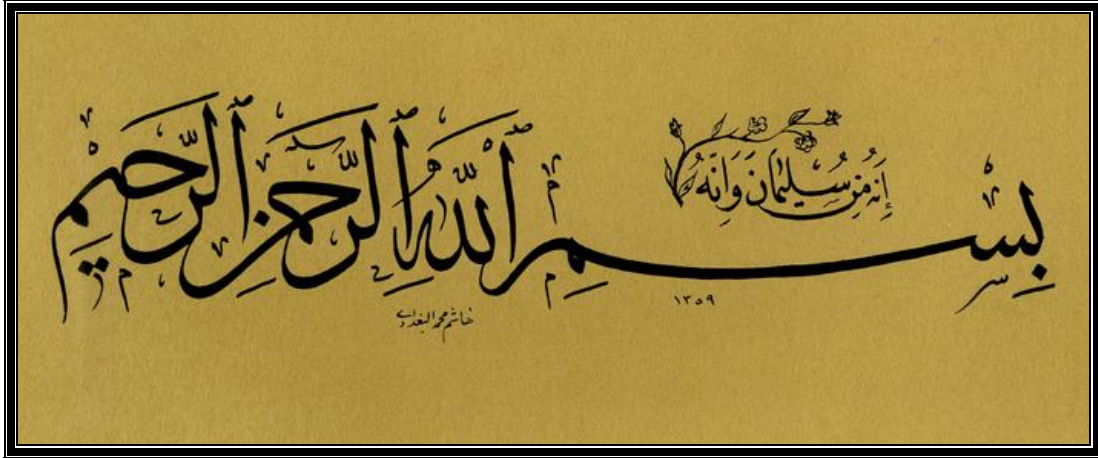 إِنَّهُ مِنْ سُلَيْمَانَ وَإِنَّهُ
بِسْمِ ٱللَّهِ ٱلرَّحْمَٰنِ ٱلرَّحِيمِ
١٣٥٩
هاشم محمد البغدادي